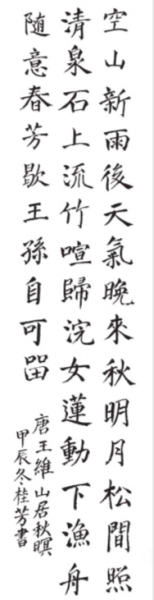 空山新雨後天氣晚來秋明月松間照
清泉石上流竹喧歸浣女蓮動下漁舟
隨意春芳歇王孫自可留
唐王維山居秋暝
甲辰冬桂芳書